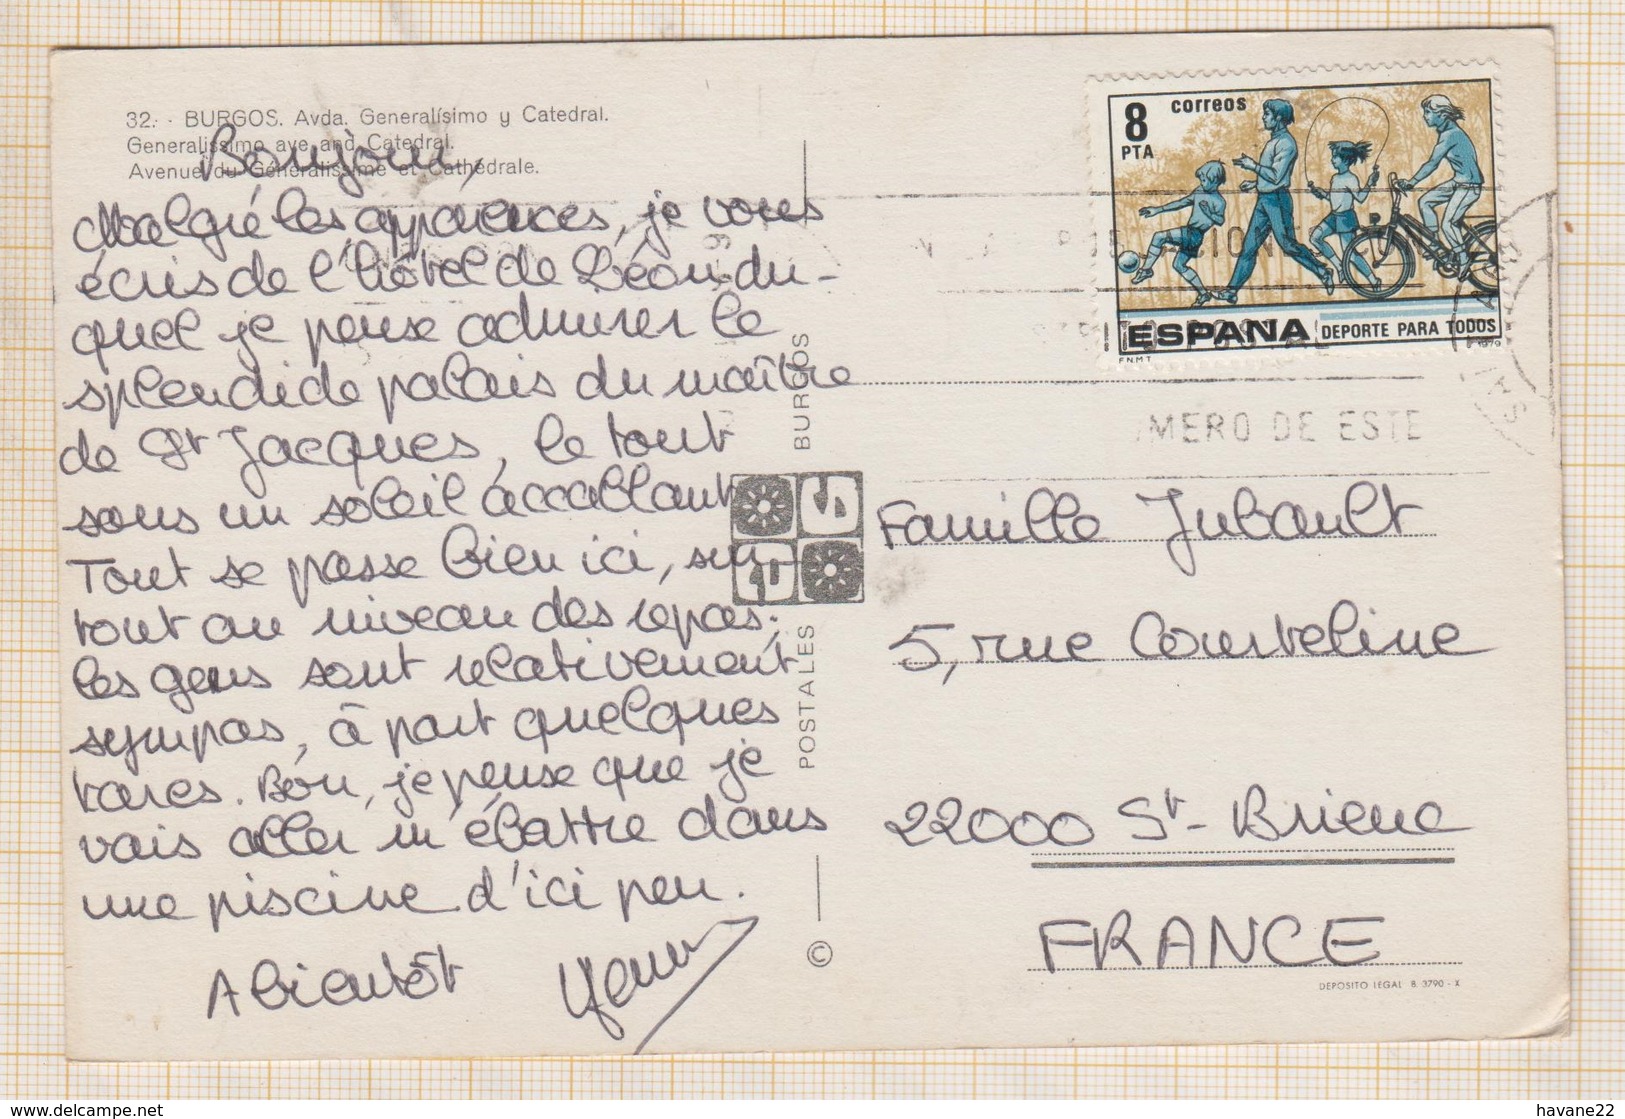 32. - BURGOS. Avda. Generalísimo y Catedral.
Generalissimo ave and Catedral.
Avenue du Géneralissime et Cathédrale.
Bonjour,
Malgré les apparences, je vous
écris de l'hôtel de Léon du-
quel je pense admirer le
splendide palais du maître
de St Jacques, le tout
sous un soleil accablant
Tout se passe bien ici, sur-
tout au niveau des repas;
les gens sont relativement
sympas, à part quelques
tares. Bon, je pense que je
vais aller m'ébattre dans
une piscine d'ici peu.
A bientôt
POSTALES BURGOS
©
8
PTA
correos
ESPANA DEPORTE PARA TODOS
F.N.M.T 1979
MERO DE ESTE
Famille Jubault
5, rue Courteline
22000 St-Brieuc
FRANCE
DEPOSITO LEGAL B. 3790 - X
www.delcampe.net
havane22